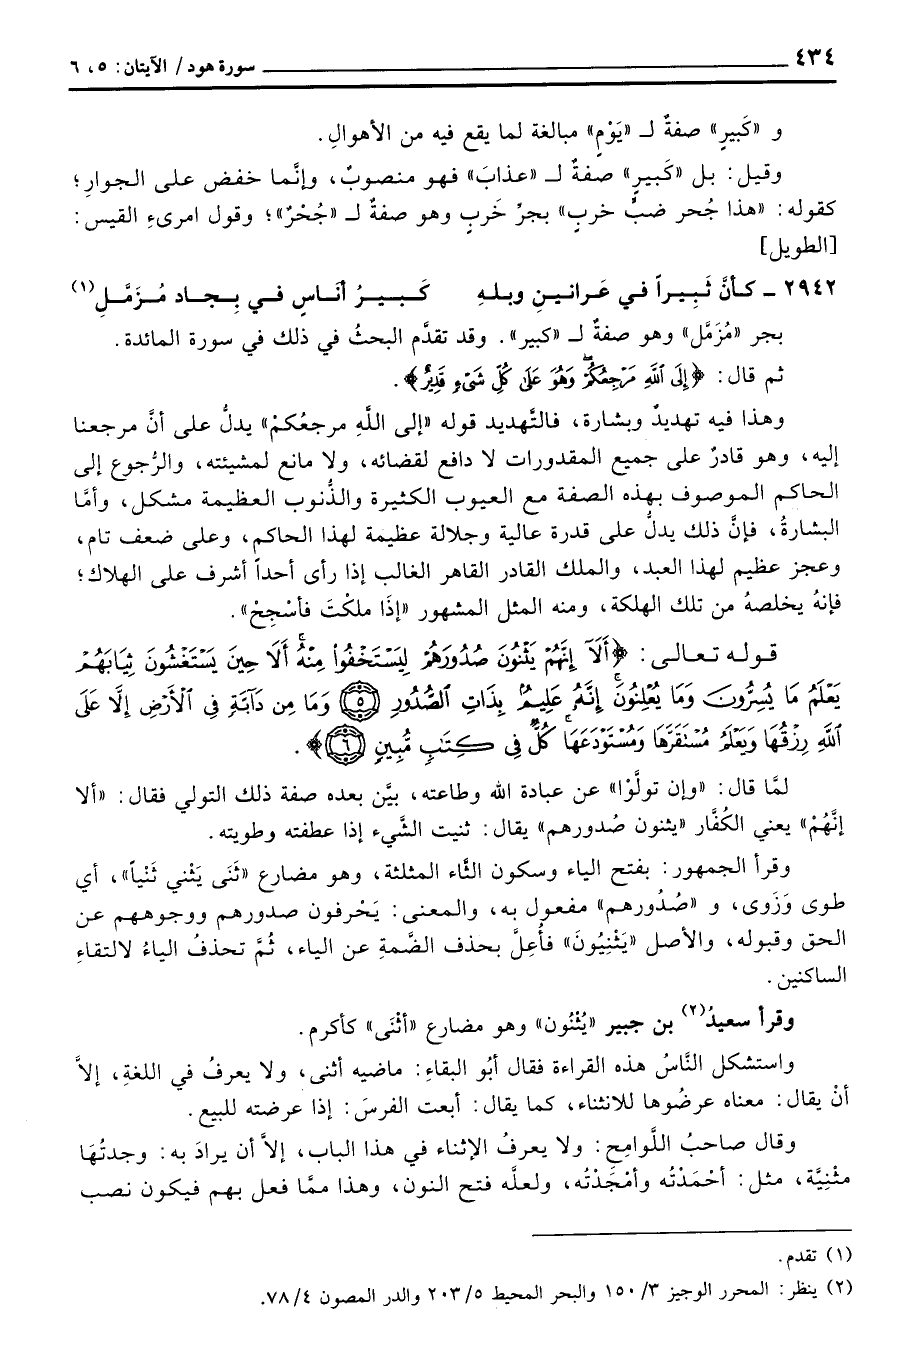 ٤٣٤ سورة هود/ الآيتان: ٥، ٦
و «كَبيرٍ» صفةٌ لـ «يَوْمٍ» مبالغة لما يقع فيه من الأهوالِ.
وقيل: بل «كَبيرٍ» صفةٌ لـ «عذابَ» فهو منصوبٌ، وإنَّما خفض على الجوارِ؛
كقوله: «هذا جُحر ضبٍّ خربٍ» بجرِّ خَربٍ وهو صفةٌ لـ «جُحْرٌ»؛ وقول امرىءِ القيس:
[الطويل]
٢٩٤٢ ـ كأنَّ ثَبِيراً في عَرانينِ وبلهِ كَبيرُ أنَاسٍ في بِجَاد مُزَمَّلِ(١)
بجر «مُزَمَّل» وهو صفةٌ لـ «كبير». وقد تقدَّم البحثُ في ذلك في سورة المائدة.
ثم قال: ﴿إِلَى اللَّهِ مَرْجِعُكُمْ ۖ وَهُوَ عَلَىٰ كُلِّ شَيْءٍ قَدِيرٌ﴾.
وهذا فيه تهديدٌ وبشارة، فالتَّهديد قوله «إلى اللَّهِ مرجعُكمْ» يدلُّ على أنَّ مرجعنا
إليه، وهو قادرٌ على جميع المقدورات لا دافع لقضائه، ولا مانع لمشيئته، والرُّجوع إلى
الحاكم الموصوف بهذه الصفة مع العيوب الكثيرة والذُّنوب العظيمة مشكل، وأمَّا
البشارةُ، فإنَّ ذلك يدلُّ على قدرة عالية وجلالة عظيمة لهذا الحاكم، وعلى ضعف تام،
وعجز عظيم لهذا العبد، والملك القادر القاهر الغالب إذا رأى أحداً أشرف على الهلاك؛
فإنهُ يخلصهُ من تلك الهلكة، ومنه المثل المشهور «إذَا ملكْتَ فأسْجِحْ».
قوله تعالى: ﴿أَلَآ إِنَّهُمْ يَثْنُونَ صُدُورَهُمْ لِيَسْتَخْفُوا۟ مِنْهُ ۚ أَلَا حِينَ يَسْتَغْشُونَ ثِيَابَهُمْ
يَعْلَمُ مَا يُسِرُّونَ وَمَا يُعْلِنُونَ ۚ إِنَّهُۥ عَلِيمٌۢ بِذَاتِ ٱلصُّدُورِ ۝٥ وَمَا مِن دَآبَّةٍ فِي ٱلْأَرْضِ إِلَّا عَلَى
ٱللَّهِ رِزْقُهَا وَيَعْلَمُ مُسْتَقَرَّهَا وَمُسْتَوْدَعَهَا ۚ كُلٌّ فِي كِتَٰبٍ مُّبِينٍ ۝٦﴾.
لمَّا قال: «وإن تولَّوْا» عن عبادة الله وطاعته، بيَّن بعده صفة ذلك التولي فقال: «ألا
إنَّهُمْ» يعني الكُفَّار «يثنون صُدورهم» يقال: ثنيت الشَّيء إذا عطفته وطويته.
وقرأ الجمهور: بفتح الياء وسكون الثَّاء المثلثة، وهو مضارع «ثَنَى يَثْني ثَنْياً»، أي
طوى وَزَوى، و «صُدُورهم» مفعول به، والمعنى: يَحْرفون صدورهم ووجوههم عن
الحق وقبوله، والأصل «يَثْنِيُونَ» فأُعِلَّ بحذف الضَّمةِ عن الياء، ثُمَّ تحذفُ الياءُ لالتقاءِ
الساكنين.
وقرأ سعيدُ(٢) بن جبير «يُثْنُون» وهو مضارع «أثْنَى» كأكرم.
واستشكل النَّاسُ هذه القراءة فقال أبُو البقاءِ: ماضيه أثنى، ولا يعرفُ في اللغةِ، إلاَّ
أنْ يقال: معناه عرضُوها للانثناء، كما يقال: أبعت الفرسَ: إذا عرضته للبيع.
وقال صاحبُ اللَّوامِح: ولا يعرفُ الإثناء في هذا الباب، إلاَّ أن يرادَ به: وجدتُهَا
مثْنِيَّة، مثل: أحْمَدْتُه وأمْجَدْتُه، ولعلَّه فتح النون، وهذا ممَّا فعل بهم فيكون نصب
(١) تقدم.
(٢) ينظر: المحرر الوجيز ٣/ ١٥٠ والبحر المحيط ٥/ ٢٠٣ والدر المصون ٤/ ٧٨.